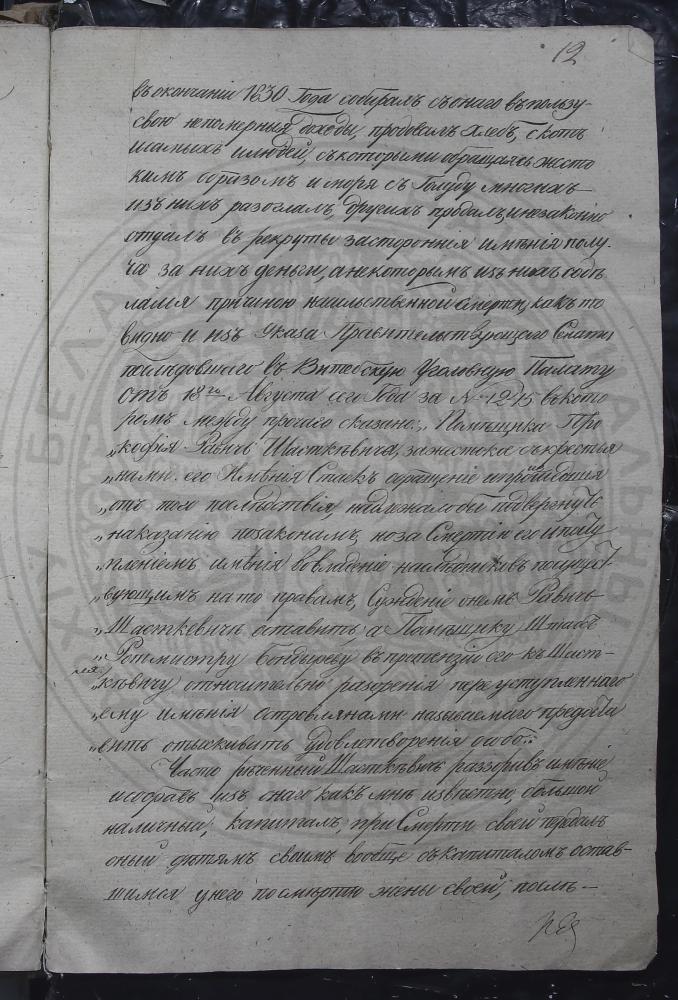 12
въ окончаніи 1830 Года собиралъ съ онаго въ пользу
свою непомерныя доходы, продовалъ хлебъ, скотъ
и самыхъ людей, съ которыми обращаясь жесто
кимъ образомъ и моря съ Голуду многихъ
изъ нихъ разогналъ, другихъ продалъ, и незаконно
отдалъ въ рекруты за стороннія имѣнія полу-
ча за нихъ деньги, а некоторымъ изъ нихъ содѣ
лался причиною насильственной смерти, какъ то
видно и изъ Указа Правительствующаго Сената
последовшаго въ Витебскую Уголовную Палату
отъ 18го Августа сего Года за № 1215 въ кото
ромъ между прочаго сказано: „Помѣщика Про
„кофія Равичъ Шасткѣвича, за жестокое съ крестья
„нами его Имѣнія Стаекъ обращеніе и происшедшия
„отъ того последствія, надлежалобы подвергнуть
„наказанію по законамъ, но за Смертію его и посту
„пленіемъ имѣнія во владеніе наследниковъ
„вующимъ на то правамъ, Сужденіе о немъ Равичъ
„Шасткевичѣ оставить, а Помѣщику Штабъ
„Ротмистру Бондыреву въ претензіи его къ Шаст-
„кѣвичу относительно разоренія переуступленнаго
„ему имѣнія Островлянами называемаго предоста
„вить отыскивать удовлетворенія особо.„
Часто реченный Шасткѣвичъ раззоривъ имѣніе
и собравъ изъ онаго какъ мнѣ извѣстно, большой
наличный, капиталъ, при Смерти своей передалъ
оный дѣтямъ своимъ вообще съ капиталомъ остав-
шимся у него по смѣртю жены своей, послѣ-